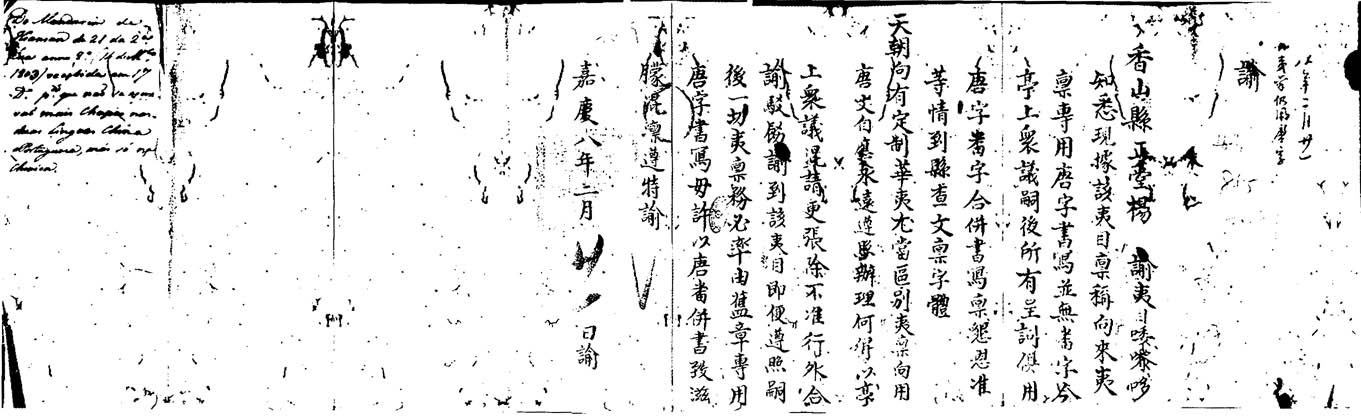 八年二月廿一
諭
香山縣正堂楊 諭夷目喽嚟哆
知悉現據該夷目稟稱向來夷
稟專用唐字書寫並無畨字今
亭上衆議嗣後所有呈詞俱用
唐字畨字合併書寫稟懇恩准
等情到縣查文稟字體
天朝向有定制華夷尤當區別夷稟向用
唐文自應永遠遵照辦理何得以亭
上衆議混請更張除不准行外合
諭駁飭諭到該夷目即便遵照嗣
後一切夷稟務必率由舊章專用
唐字書寫毋許以唐畨併書致滋
朦混凜遵特諭
嘉慶八年二月廿 日諭
Do Mandarim de
Hiansan de 21 da 2ª
lua anno 8º
1803) recebida em 17
Dº pª que não
mais Chapa nas
duas linguas China
Portugueza, mas só
China.